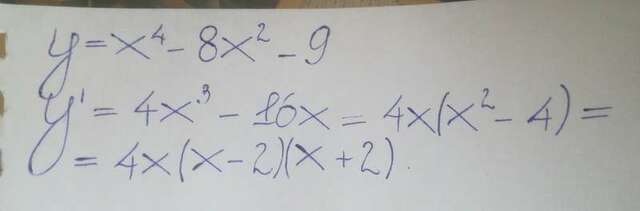 y = x⁴ - 8x² - 9
y' = 4x³ - 16x = 4x(x² - 4) =
= 4x(x - 2)(x + 2).